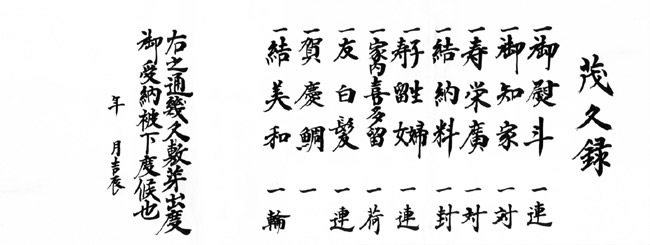 茂久録
一御熨斗 一連
一御知家 一対
一寿栄廣 一対
一結納料 一封
一寿子留女婦 一連
一家内喜多留 一荷
一友白髪 一連
一賀慶鯛 一
一結美和 一輪
右之通幾久敷芽出度
御受納被下度候也
年 月吉辰